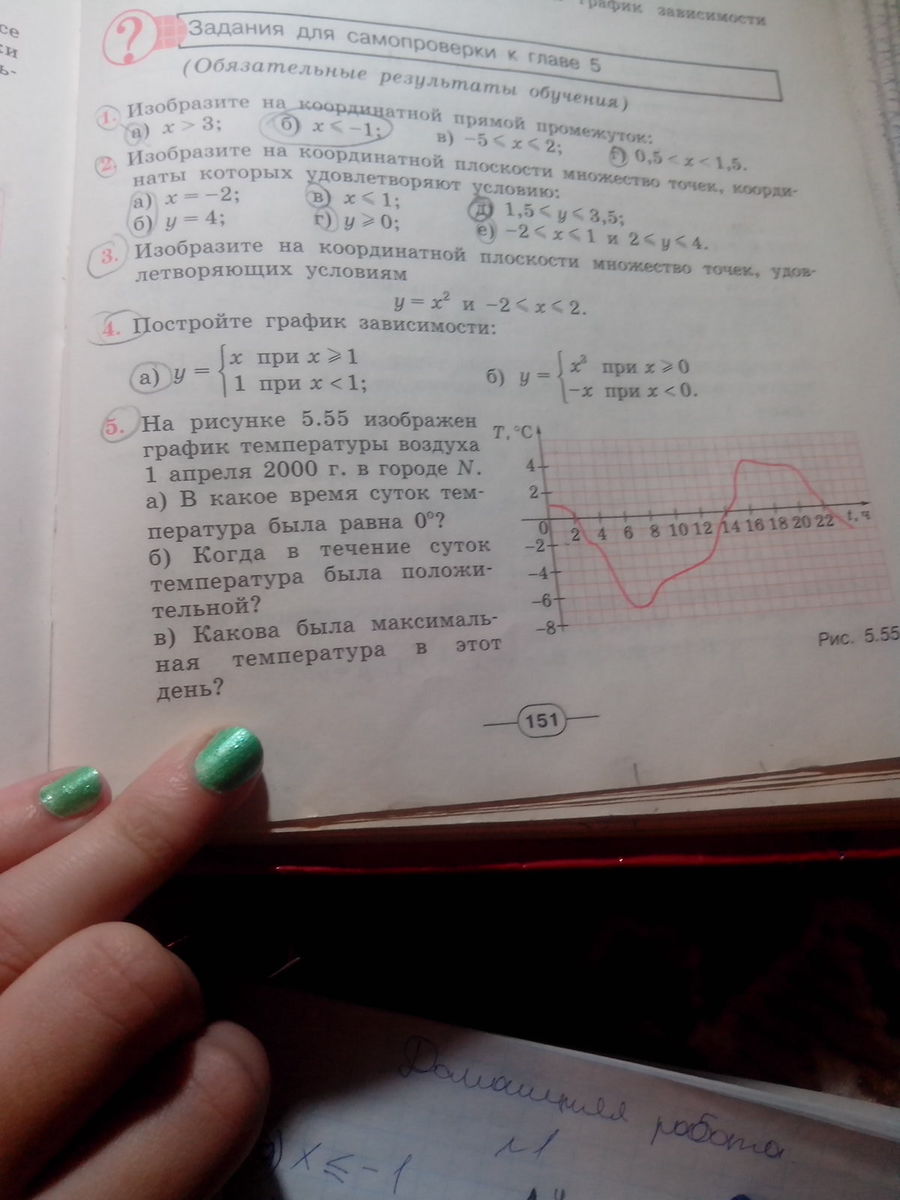 се
ки
ь-
график зависимости
?
Задания для самопроверки к главе 5
(Обязательные результаты обучения)
1. Изобразите на координатной прямой промежуток:
а) x > 3; б) x ⩽ −1; в) −5 ⩽ x ⩽ 2; г) 0,5 < x < 1,5.
2. Изобразите на координатной плоскости множество точек, коорди-
наты которых удовлетворяют условию:
а) x = −2; в) x ⩽ 1; д) 1,5 ⩽ y ⩽ 3,5;
б) y = 4; г) y ⩾ 0; е) −2 ⩽ x ⩽ 1 и 2 ⩽ y ⩽ 4.
3. Изобразите на координатной плоскости множество точек, удов-
летворяющих условиям
y = x² и −2 ⩽ x ⩽ 2.
4. Постройте график зависимости:
а) y = { x при x ⩾ 1
1 при x < 1;
б) y = { x³ при x ⩾ 0
−x при x < 0.
5. На рисунке 5.55 изображен
график температуры воздуха
1 апреля 2000 г. в городе N.
а) В какое время суток тем-
пература была равна 0°?
б) Когда в течение суток
температура была положи-
тельной?
в) Какова была максималь-
ная температура в этот
день?
T, °C
4
2
0 2 4 6 8 10 12 14 16 18 20 22 t, ч
−2
−4
−6
−8
Рис. 5.55
151
Домашняя работа
№1
x ≤ −1